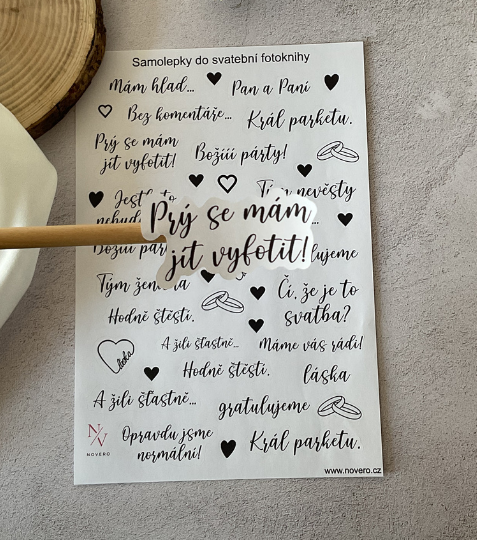 Samolepky do svatební fotoknihy
Mám hlad...
Pan a Paní
Bez komentáře...
Král parketu.
Prý se mám
jít vyfotit!
Božííí párty!
Tým nevěsty
Prý se mám
jít vyfotit!
Božííí
Tým
Či, že je to
svatba?
Hodně štěstí.
A žili šťastně...
Máme vás rádi!
láska
Hodně štěstí.
láska
A žili šťastně...
gratulujeme
NV
NOVERO
Opravdu jsme
normální!
Král parketu.
www.novero.cz